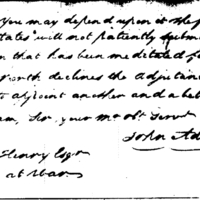 you may depend upon it the p
tates" will not patiently submi
n that has been meditated fo
orth declines the Adjutan
to adjoint another and a bet
am, Sir, your mo obt Servt
John Ad
Henry Esqr
at War